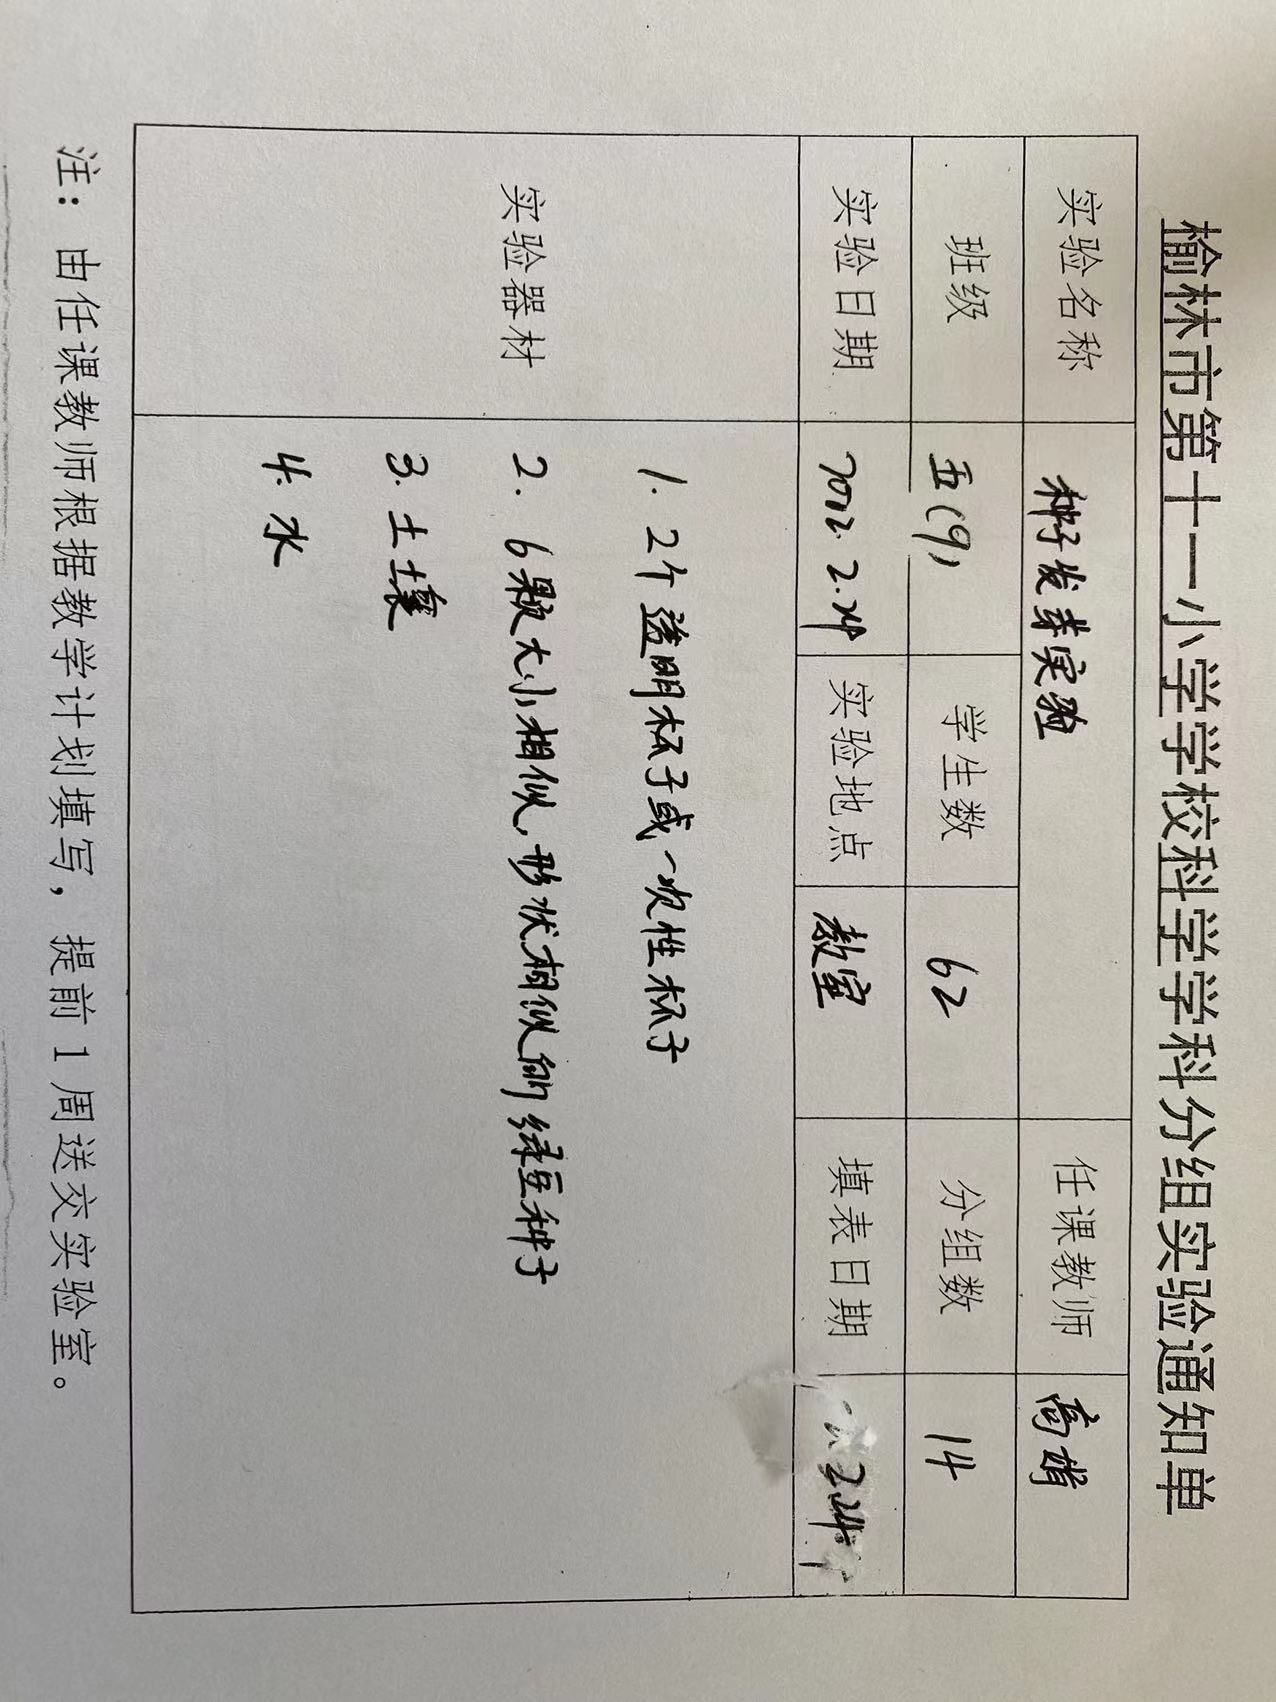 榆林市第十一小学学校科学学科分组实验通知单
实验名称 种子发芽实验 任课教师 高娟
班级 五(9) 学生数 62 分组数 14
实验日期 2022.2.24 实验地点 教室 填表日期 2.24
实验器材
1. 2个透明杯子或一次性杯子
2. 6颗大小相似,形状相似的绿豆种子
3. 土壤
4. 水
注：由任课教师根据教学计划填写，提前1周送交实验室。